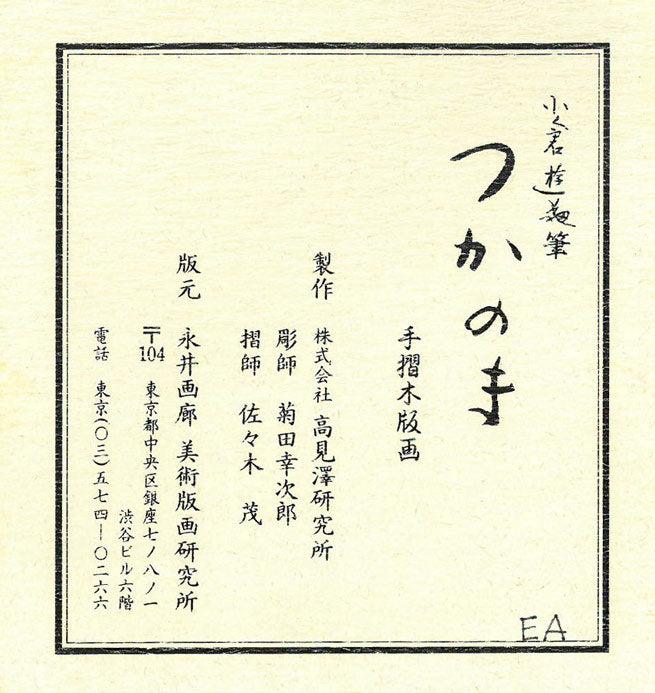 小倉遊亀筆
つかのま
手摺木版画
製作 株式会社 高見澤研究所
彫師 菊田幸次郎
摺師 佐々木 茂
版元 永井画廊 美術版画研究所
〒104 東京都中央区銀座七ノ八ノ一
渋谷ビル六階
電話 東京(〇三)五七四―〇二六六
EA